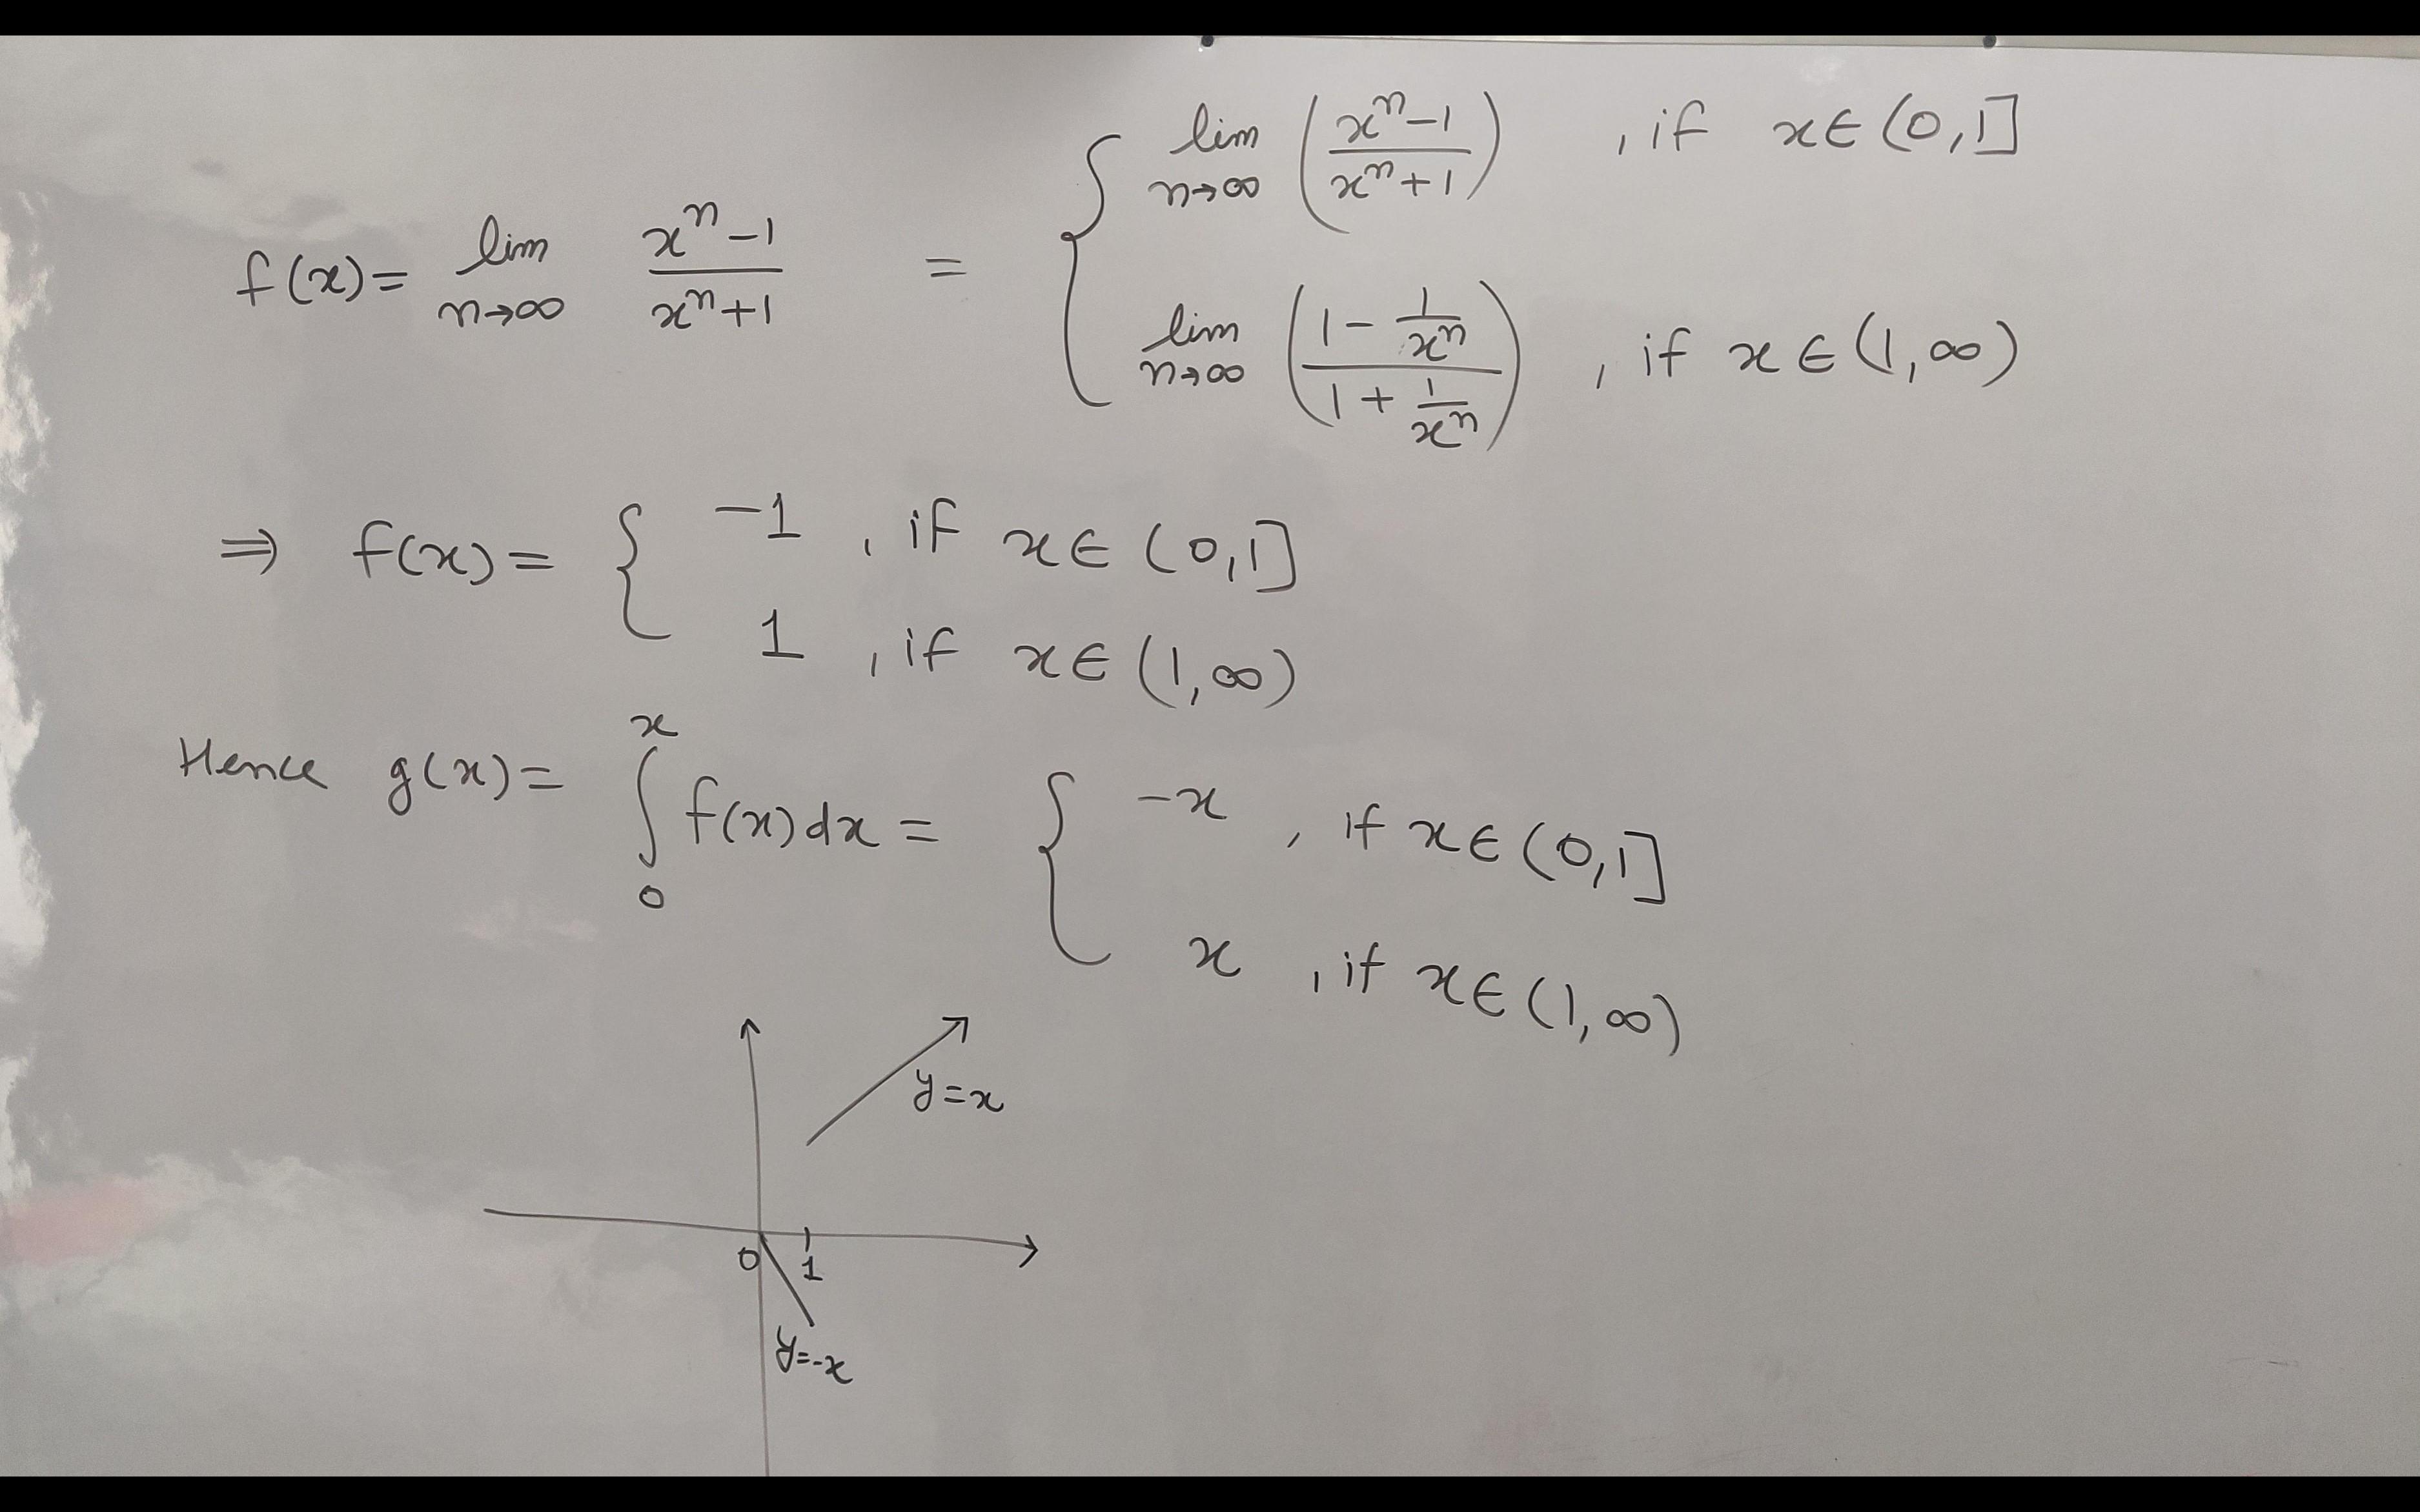 f(x) = lim n→∞ (x^n − 1)/(x^n + 1) = { lim n→∞ ((x^n − 1)/(x^n + 1)) , if x ∈ (0, 1]
lim n→∞ ((1 − 1/x^n)/(1 + 1/x^n)) , if x ∈ (1, ∞)
⇒ f(x) = { −1 , if x ∈ (0, 1]
1 , if x ∈ (1, ∞)
Hence g(x) = ∫_0^x f(x) dx = { −x , if x ∈ (0, 1]
x , if x ∈ (1, ∞)
y = x
0 1
y = −x